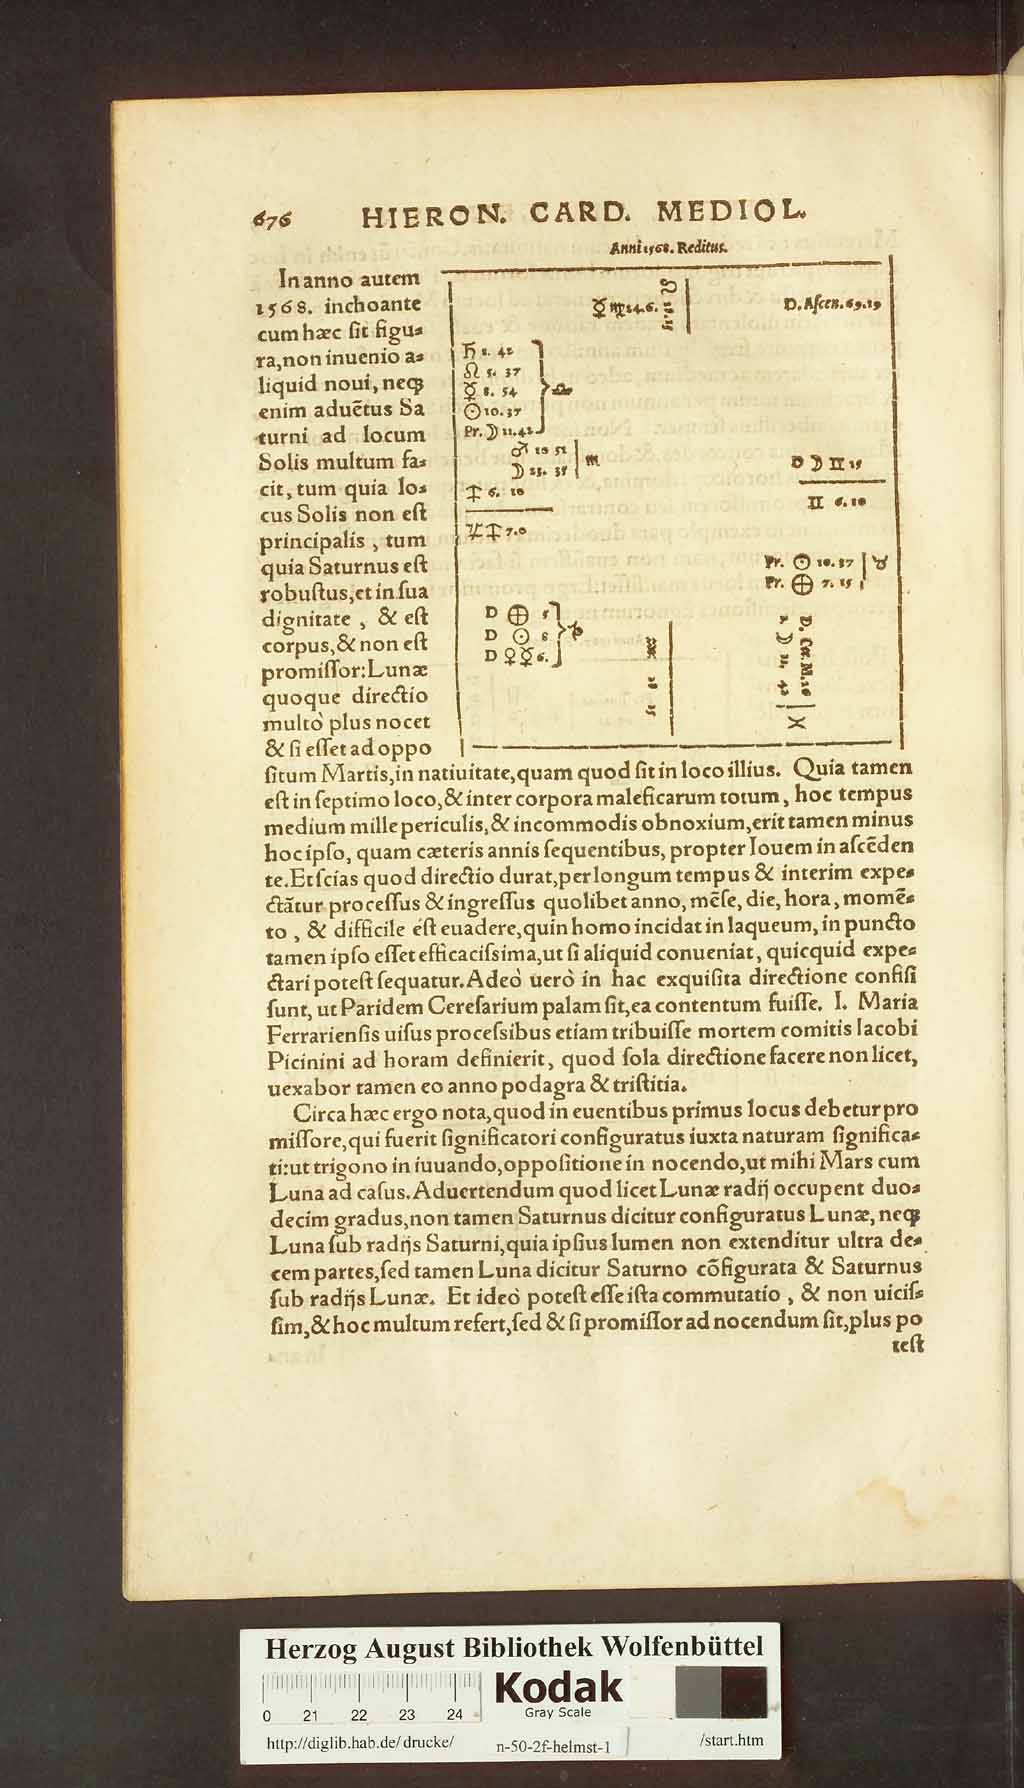 676 HIERON. CARD. MEDIOL.
Anni 1568. Reditus.
In anno autem
1568. inchoante
cum hæc sit figu-
ra, non inuenio a-
liquid noui, neq;
enim aduẽtus Sa
turni ad locum
Solis multum fa-
cit, tum quia lo-
cus Solis non est
principalis, tum
quia Saturnus est
robustus, et in sua
dignitate, & est
corpus, & non est
promissor: Lunæ
quoque directio
multò plus nocet
& si esset ad oppo
☿ ♍ 24. 6.
♌
D. Ascen. 69. 19
♄ 1. 42
☊ 5. 37
☿ 8. 54
☉ 10. 37
Pr. ☽ 11. 42
♎
♂ 10 51
☽ 23. 35
♏
D ☽ ♊ 15
♊ 6. 10
6. 10
7. 0
Pr. ☉ 10. 37
Pr. ⊕ 7. 15
♉
D ⊕ 5
D ☉ 8
D ♀ ☿ 6.
♑
♒
D. Cœ. M. 26
☽ 11. 42
♓
situm Martis, in natiuitate, quam quod sit in loco illius. Quia tamen
est in septimo loco, & inter corpora maleficarum totum, hoc tempus
medium mille periculis, & incommodis obnoxium, erit tamen minus
hoc ipso, quam cæteris annis sequentibus, propter Iouem in ascẽden
te. Et scias quod directio durat, per longum tempus & interim expe-
ctãtur processus & ingressus quolibet anno, mẽse, die, hora, momẽ-
to, & difficile est euadere, quin homo incidat in laqueum, in puncto
tamen ipso esset efficacissima, ut si aliquid conueniat, quicquid expe-
ctari potest sequatur. Adeò uerò in hac exquisita directione confisi
sunt, ut Paridem Ceresarium palam sit, ea contentum fuisse. I. Maria
Ferrariensis uisus processibus etiam tribuisse mortem comitis Iacobi
Picinini ad horam definierit, quod sola directione facere non licet,
uexabor tamen eo anno podagra & tristitia.
Circa hæc ergo nota, quod in euentibus primus locus debetur pro
missore, qui fuerit significatori configuratus iuxta naturam significa-
ti: ut trigono in iuuando, oppositione in nocendo, ut mihi Mars cum
Luna ad casus. Aduertendum quod licet Lunæ radij occupent duo-
decim gradus, non tamen Saturnus dicitur configuratus Lunæ, neq;
Luna sub radijs Saturni, quia ipsius lumen non extenditur ultra de-
cem partes, sed tamen Luna dicitur Saturno cõfigurata & Saturnus
sub radijs Lunæ. Et ideò potest esse ista commutatio, & non uicis-
sim, & hoc multum refert, sed & si promissor ad nocendum sit, plus po
test
Herzog August Bibliothek Wolfenbüttel
Kodak
Gray Scale
0 21 22 23 24
http://diglib.hab.de/drucke/ n-50-2f-helmst-1 /start.htm